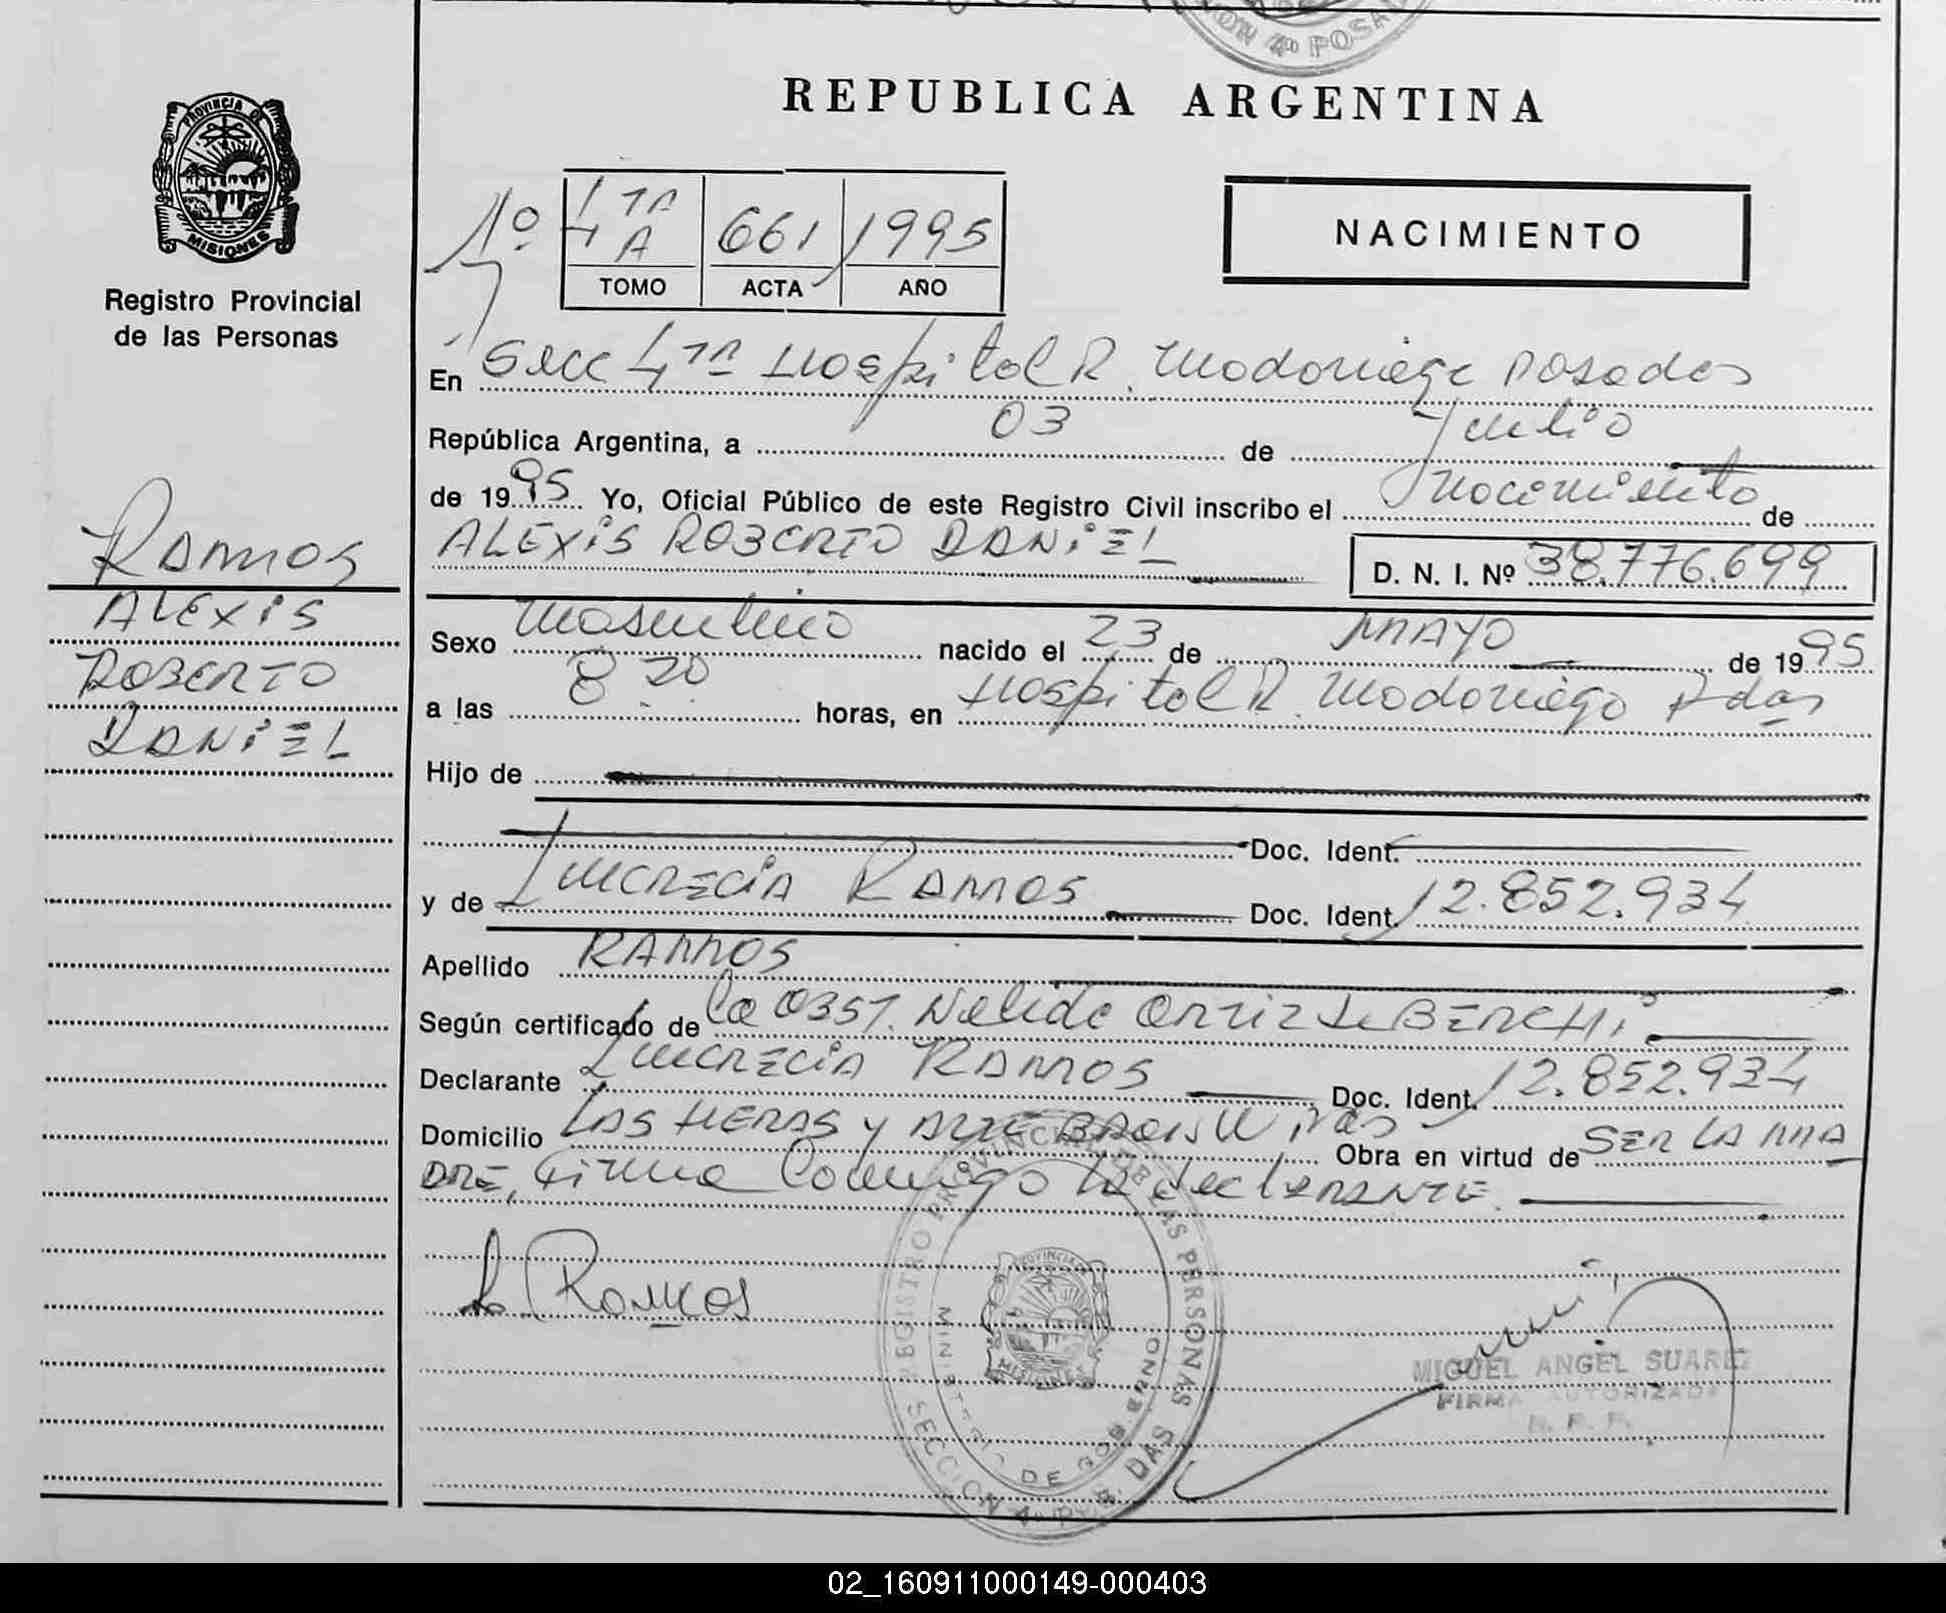 ION 4º POSA
REPUBLICA ARGENTINA
PROVINCIA DE
MISIONES
Registro Provincial
de las Personas
1º
4TA A 661 1995
TOMO ACTA AÑO
NACIMIENTO
En Secc 4TA Hospital R. Madariaga Posadas
República Argentina, a 03 de Julio
de 1995 Yo, Oficial Público de este Registro Civil inscribo el Nacimiento de
ALEXIS ROBERTO DANIEL
D. N. I. Nº 38.776.699
RAMOS
ALEXIS
ROBERTO
DANIEL
Sexo Masculino nacido el 23 de MAYO de 1995
a las 8 20 horas, en Hospital R. Madariaga Pdas
Hijo de
Doc. Ident.
y de Lucrecia Ramos Doc. Ident. 12.852.934
Apellido RAMOS
Según certificado de Nelida Ortiz de BERCHI
Declarante Lucrecia RAMOS Doc. Ident. 12.852.934
Domicilio LAS HERAS y Obra en virtud de SER LA MA
DRE, Firma Conmigo la declarante.
L Ramos
REGISTRO PROVINCIAL DE LAS PERSONAS
MINISTERIO DE GOBIERNO
PROVINCIA
MISIONES
SECCION 4º
MIGUEL ANGEL SUAREZ
FIRMA AUTORIZADA
R. P. P.
02_160911000149-000403